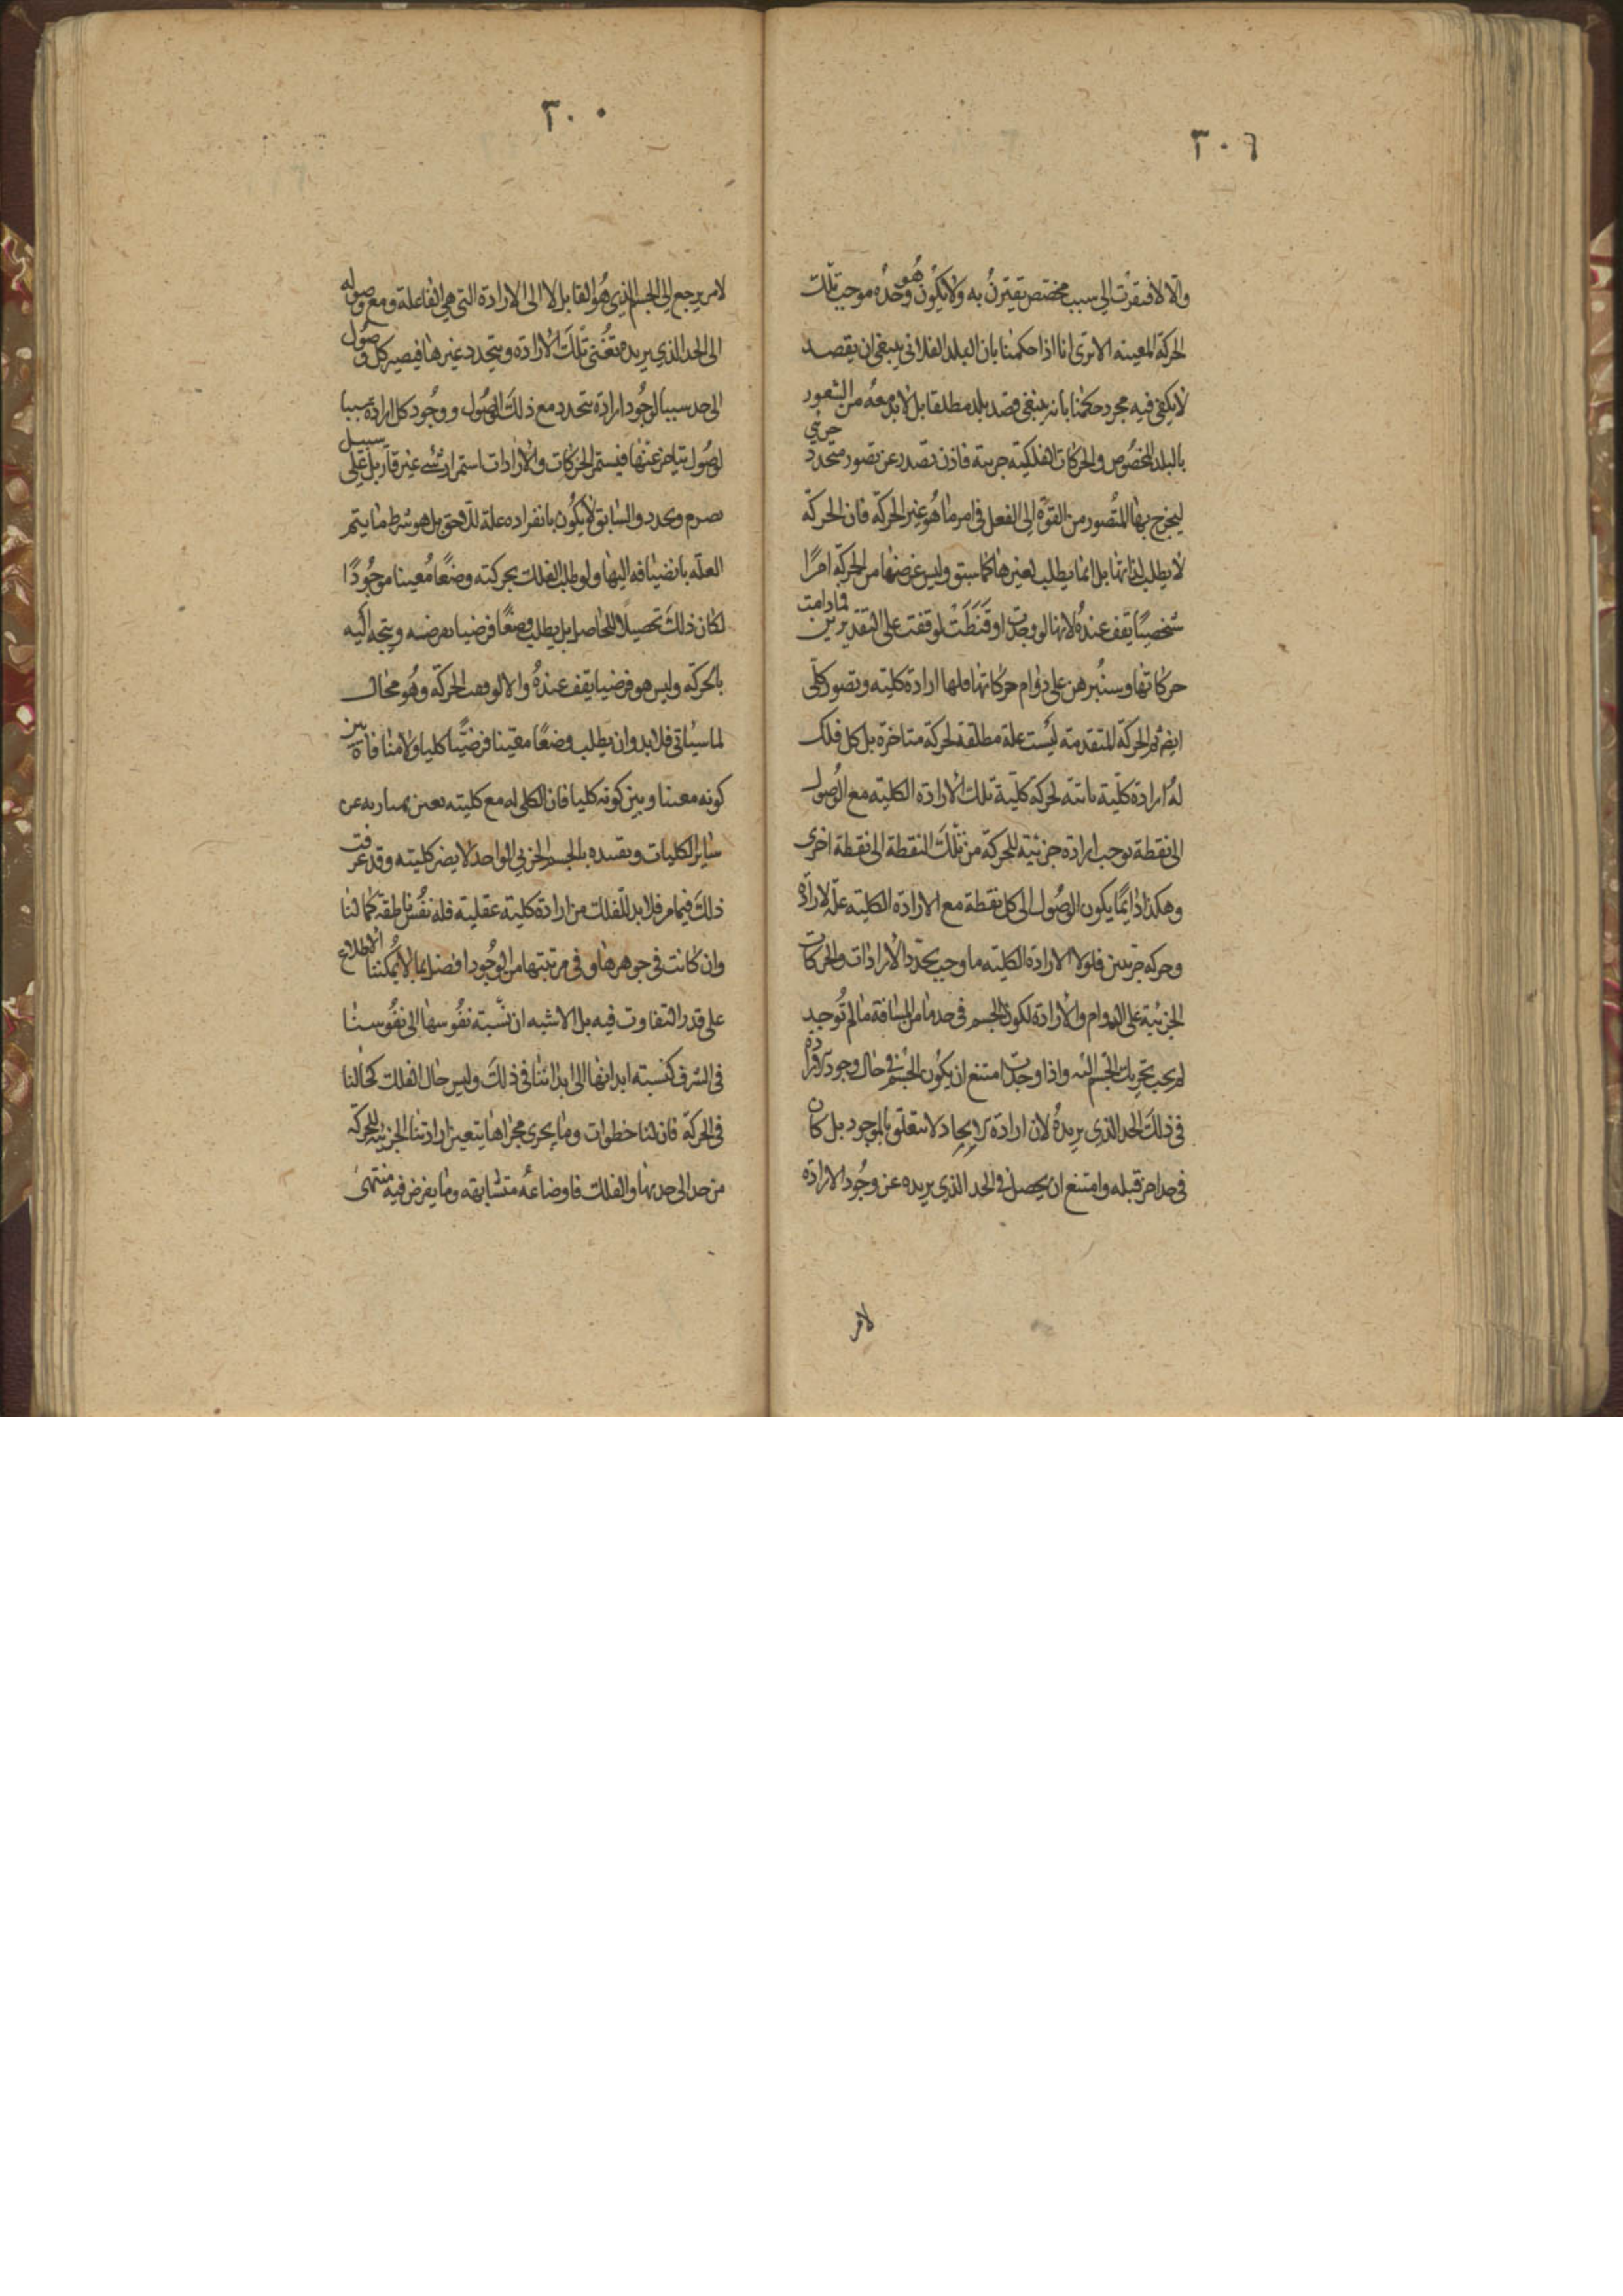 ٣٠٦
والا لافتقرت الى سبب مخصص يقترن به ولا يكون هو وحده موجب تلك
الحركة المعينه الا ترى انا اذا حكمنا بان البلد الفلانى ينبغى ان يقصد
لا يكفى فيه مجرد حكمنا بانه ينبغى قصد بلد مطلقا بل لا بد معه من الشعور
بالبلد المخصوص والحركات الفلكية جزية فاذن تصدر عن تصور متجدد جزئى
ليخرج بها المتصور من القوة الى الفعل فى امر ما هو غير الحركة فان الحركة
لا يطلب لذاتها بل انما يطلب لغيرها كما سبق وليس غرضها من الحركة امرًا
شخصيًا يقف عنده لانها لو وجدت او قنطت لوقفت على التقديرين فما دامت
حركاتها وسنبرهن على دوام حركاتها فلها ارادة كلية وتصور كلى
ايضا ثم الحركة المتقدمة ليست علة مطلقة لحركة متاخرة بل كل فلك
له ارادة كلية ثابتة لحركة كلية تلك الارادة الكلية مع الوصول
الى نقطة يوجب ارادة جزئية للحركة من تلك النقطة الى نقطة اخرى
وهكذا دايمًا يكون الوصول الى كل نقطة مع الارادة الكلية علة لارادة
وحركه جزيين فلولا الارادة الكلية ما وجب تجدد الارادات والحركات
الجزئية على الدوام والارادة لكون الجسم فى حد ما من المسافة ما لم توجد
لم يجب تحريك الجسم اليه واذا وجدت امتنع ان يكون الجسم فى حال وجود الارادة
فى ذلك الحد الذى يريده لان ارادة الايجاد لا تتعلق بالموجود بل كان
فى حد اخر قبله وامتنع ان يحصل فى الحد الذى يريده عن وجود الارادة
لامر
٣٠٠
لامر يرجع الى الجسم الذى هو القابل لا الى الارادة التى هى الفاعلة ومع وصوله
الى الحد الذى يريده تفنى تلك الارادة ويتجدد غيرها فيصير كل وصول
الى حد سببا لوجود ارادة تتجدد مع ذلك الوصول ووجود كل ارادة سببا
لوصول يتاخر عنها فيستمر الحركات والارادات استمرار شىء غير قار بل على سبيل
تصرم وتجدد والسابق لا يكون بانفراده علة للاحق بل هو شرط ما يتم
العلة بانضيافه اليها ولو طلب الفلك بحركته وضعًا معينا موجودًا
لكان ذلك تحصيلًا للحاصل بل يطلب وضعًا فرضيا يفرضه ويتجه اليه
بالحركة وليس هو فرضيا يقف عنده والا لوقفت الحركة وهو محال
لما سياتى فلا بد وان يطلب وضعًا معينا فرضيًا كليا ولا منافاة بين
كونه معينا وبين كونه كليا فان الكلى له مع كليته تعين يمتاز به عن
ساير الكليات وتقيده بالجسم الجزيى الواحد لا يضر كليته وقد عرفت
ذلك فيما مر فلا بد للفلك من ارادة كلية عقلية فله نفس ناطقة كما لنا
وان كانت فى جوهرها وفى مرتبتها من الوجود افضل بما لا يمكننا الاطلاع
على قدر التفاوت فيه بل الاشبه ان نسبة نفوسها الى نفوسنا
فى الشرف كنسبة ابدانها الى ابداننا فى ذلك وليس حال الفلك كحالنا
فى الحركة فان لنا خطوات وما يجرى مجراها يتعين ارادتنا الجزيية للحركة
من حد الى حد بها والفلك فاوضاعه متشابهة وما يفرض فيه منتهى